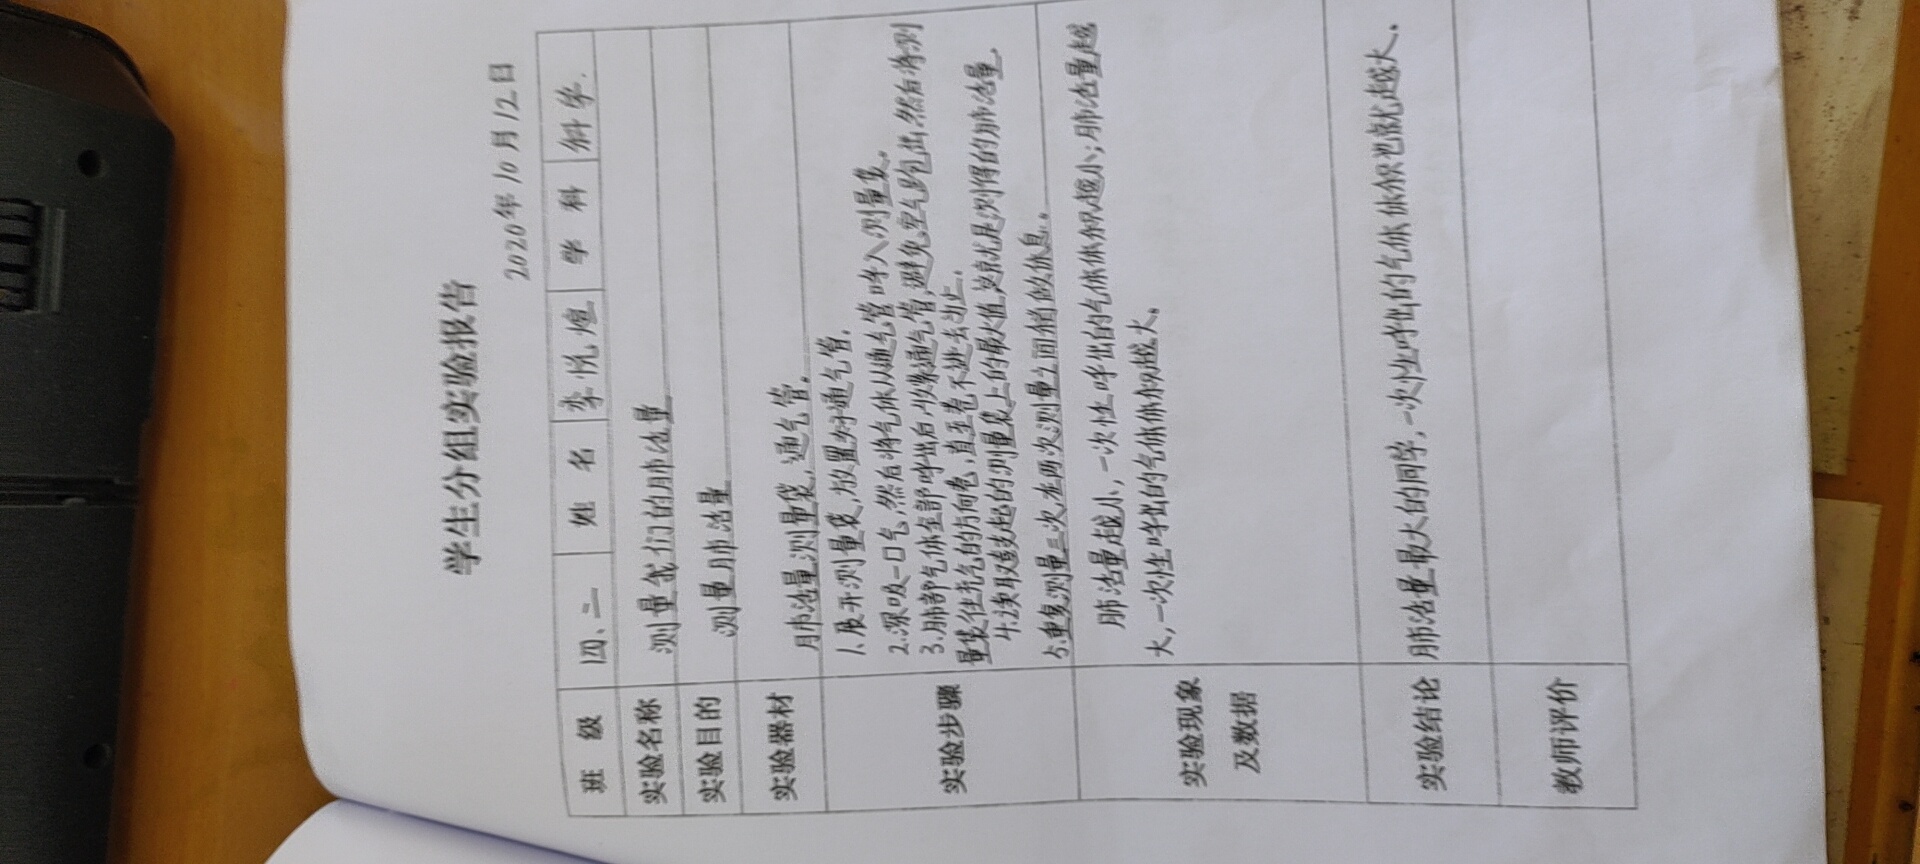 学生分组实验报告
2020年10月12日
班级 四、二 姓名 李悦煊 学科 科学.
实验名称 测量我们的肺活量
实验目的 测量肺活量
实验器材 肺活量测量袋,通气管。
实验步骤
1.展开测量袋,放置好通气管.
2.深吸一口气,然后将气体从通气管呼入测量袋。
3.肺部气体全部呼出后,收紧通气管,避免空气跑出,然后将测
量袋往充气的方向卷,直至卷不进去为止.
4.读取鼓起的测量袋上的最大值,这就是测得的肺活量.
5.重复测量三次,在两次测量之间稍做休息。
实验现象
及数据
肺活量越小,一次性呼出的气体体积越小;肺活量越
大,一次性呼出的气体体积越大。
实验结论 肺活量最大的同学,一次性呼出的气体体积也就越大。
教师评价